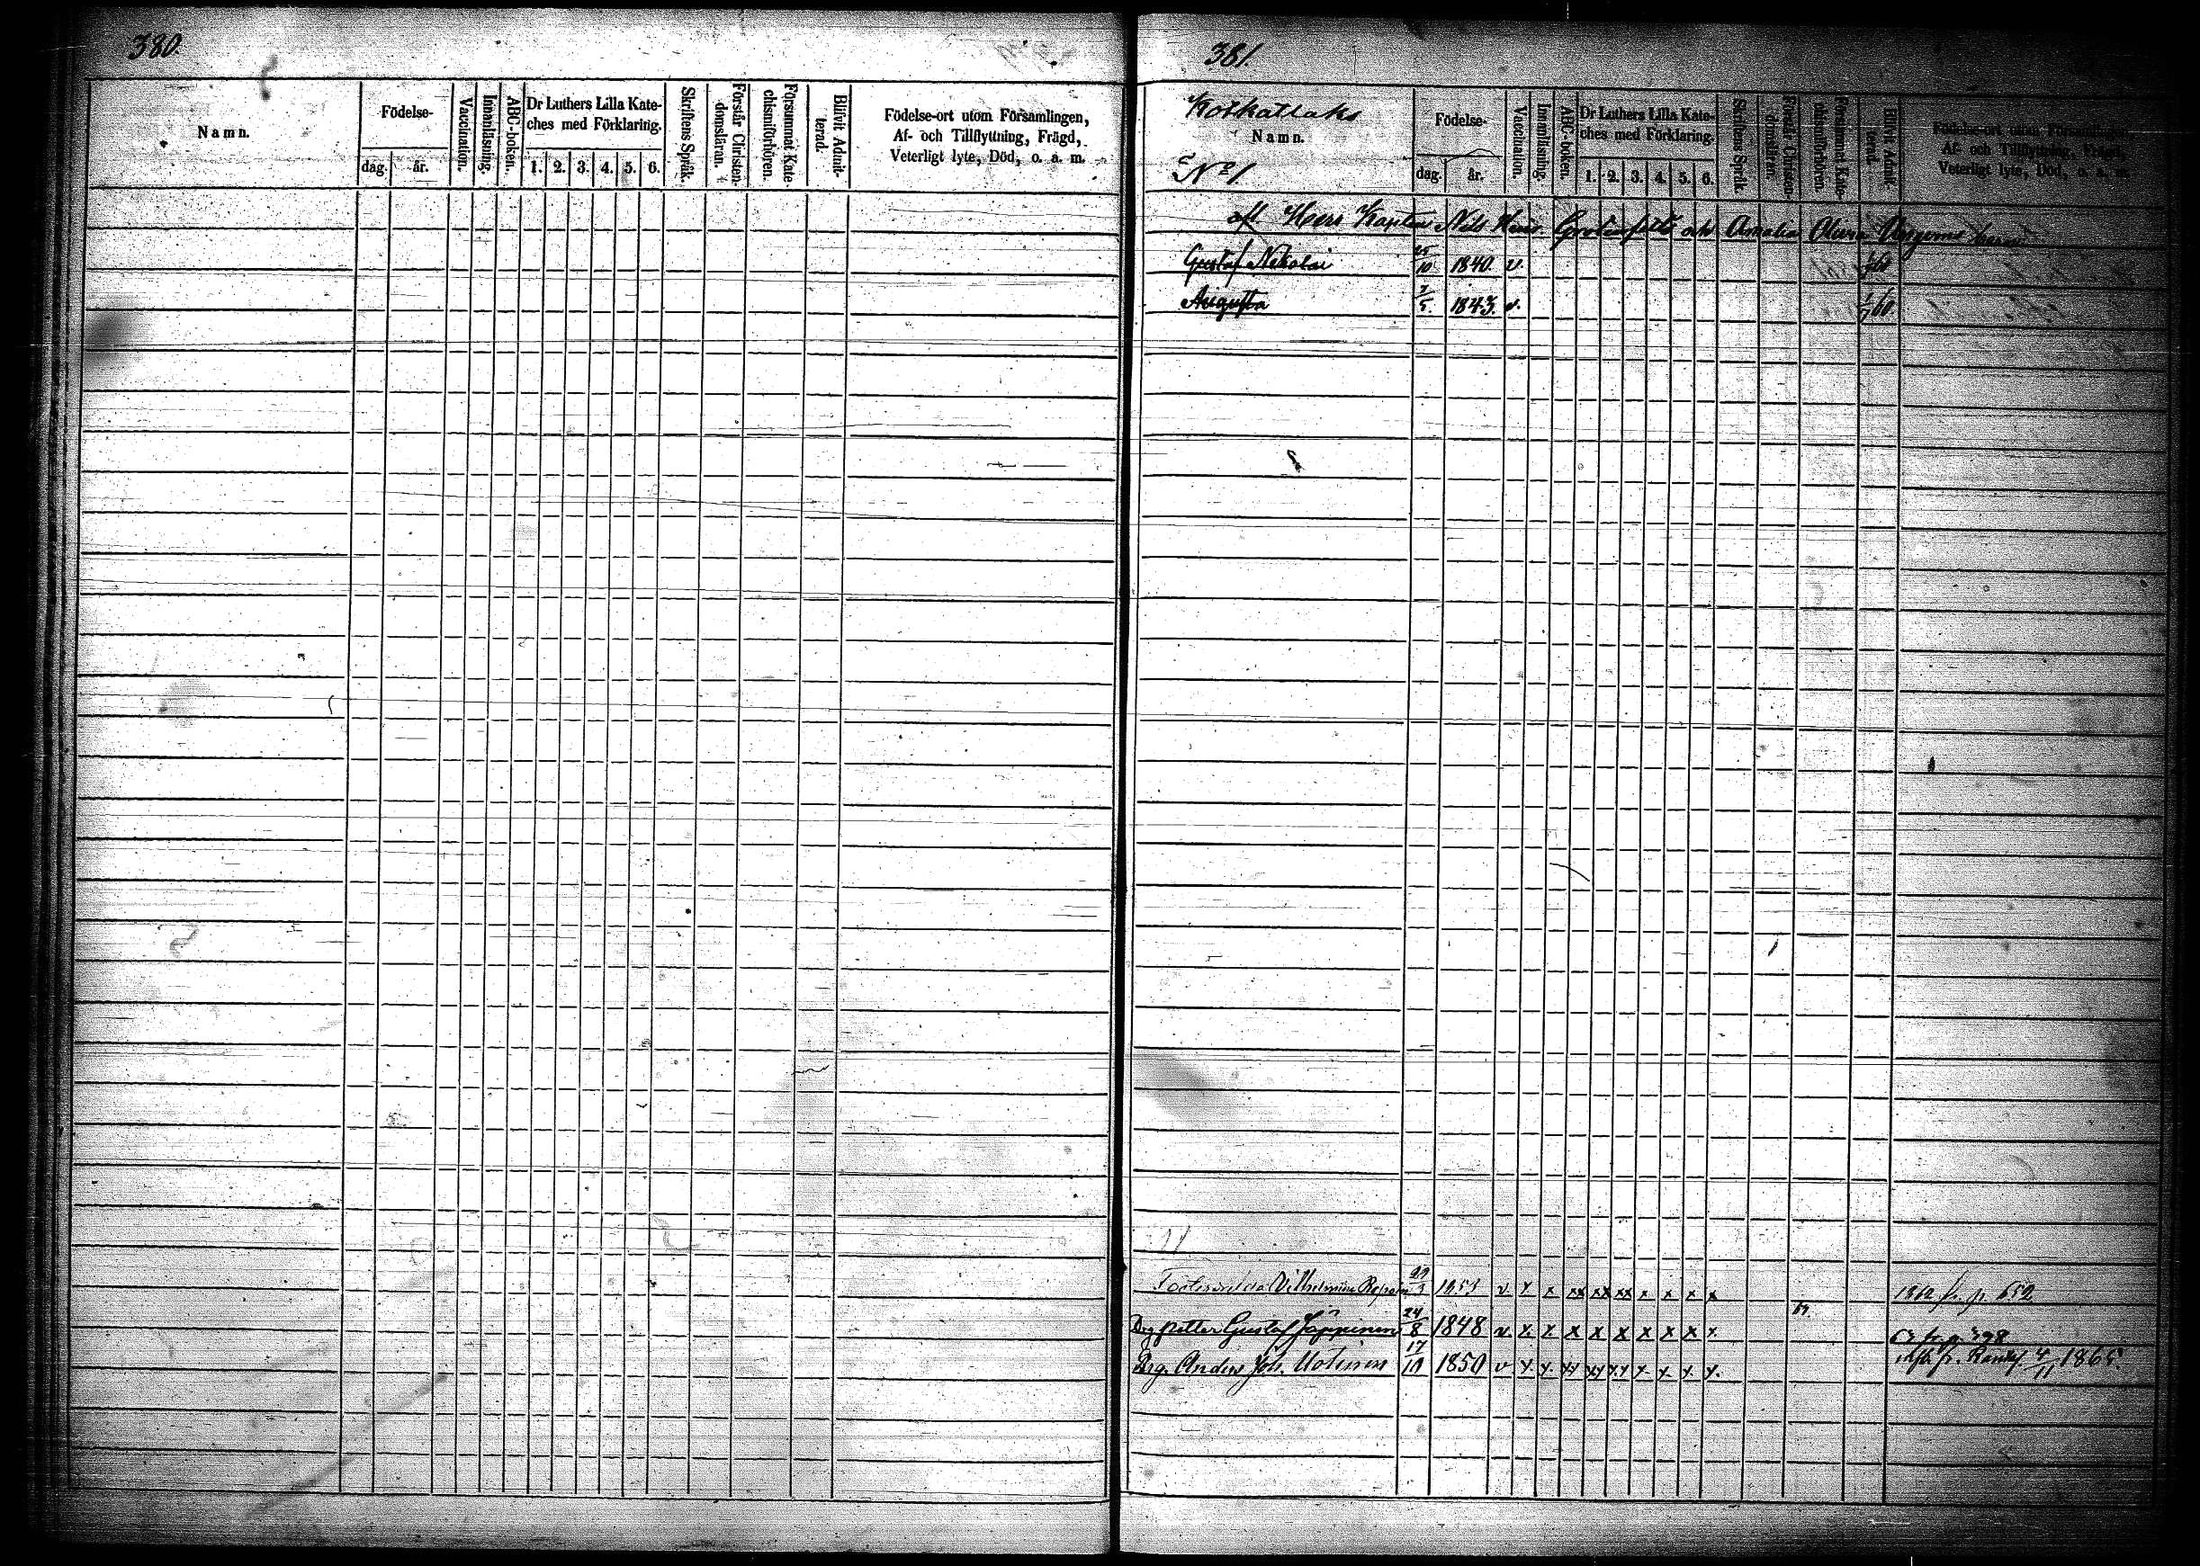 380.
Namn.
Födelse-
dag.
år.
Vaccination.
Innanläsning.
ABC-boken.
Dr Luthers Lilla Kate-
ches med Förklaring.
1. 2. 3. 4. 5. 6.
Skriftens Språk.
Förstår Christen-
domsläran.
Försummat Kate
chismiförhören.
Blifvit Admit-
terad.
Födelse-ort utom Församlingen,
Af- och Tillflyttning, Frägd,
Veterligt lyte, Död, o. a. m.
381.
Kotkatlaks
Namn.
No 1
Födelse-
dag.
år.
Vaccination.
Innanläsning.
ABC-boken.
Dr Luthers Lilla Kate-
ches med Förklaring.
1. 2. 3. 4. 5. 6.
Skriftens Språk.
Förstår Christen-
domsläran.
Försummat Kate-
chismiförhören.
Blifvit Admit-
terad.
Födelse-ort utom Församlingen,
Af- och Tillflyttning, Frägd,
Veterligt lyte, Död, o. a. m.
afl. Herr Kapten Nils Grotenfelts och Amalia barn
Gustaf Nikolai 25/10 1840. v.
Augusta 1843. v. 1/7 60
Vilhelmina v x x xx xx xx x x x x fr. p. 650.
Drg petter Gustaf Jäppinen 24/8 1848 v. x. x x x x x x x x. p. 398
Drg. Anders Joh. Uotinen 17/10 1850 v x x. xx xx xx x x x. x. fr. 4/11 1865.